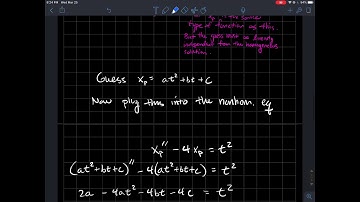 9:24 PM Wed Mar 25
type of function as this.
But the guess must be linearly
independent from the homogeneous
solution.
Guess xₚ = at² + bt + c
Now plug this into the nonhom. eq
xₚ'' - 4xₚ = t²
(at² + bt + c)'' - 4(at² + bt + c) = t²
2a - 4at² - 4bt - 4c = t²